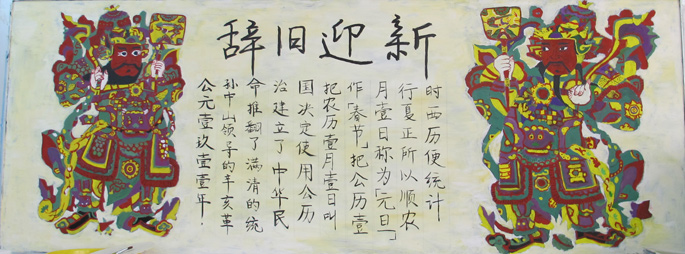 辞旧迎新
公元壹玖壹壹年．
孙中山领导的辛亥革
命推翻了满清的统
治建立了中华民
国决定使用公历
把农历壹月壹日叫
作「春节」把公历壹
月壹日称为「元旦」
行夏正所以顺农
时西历便统计